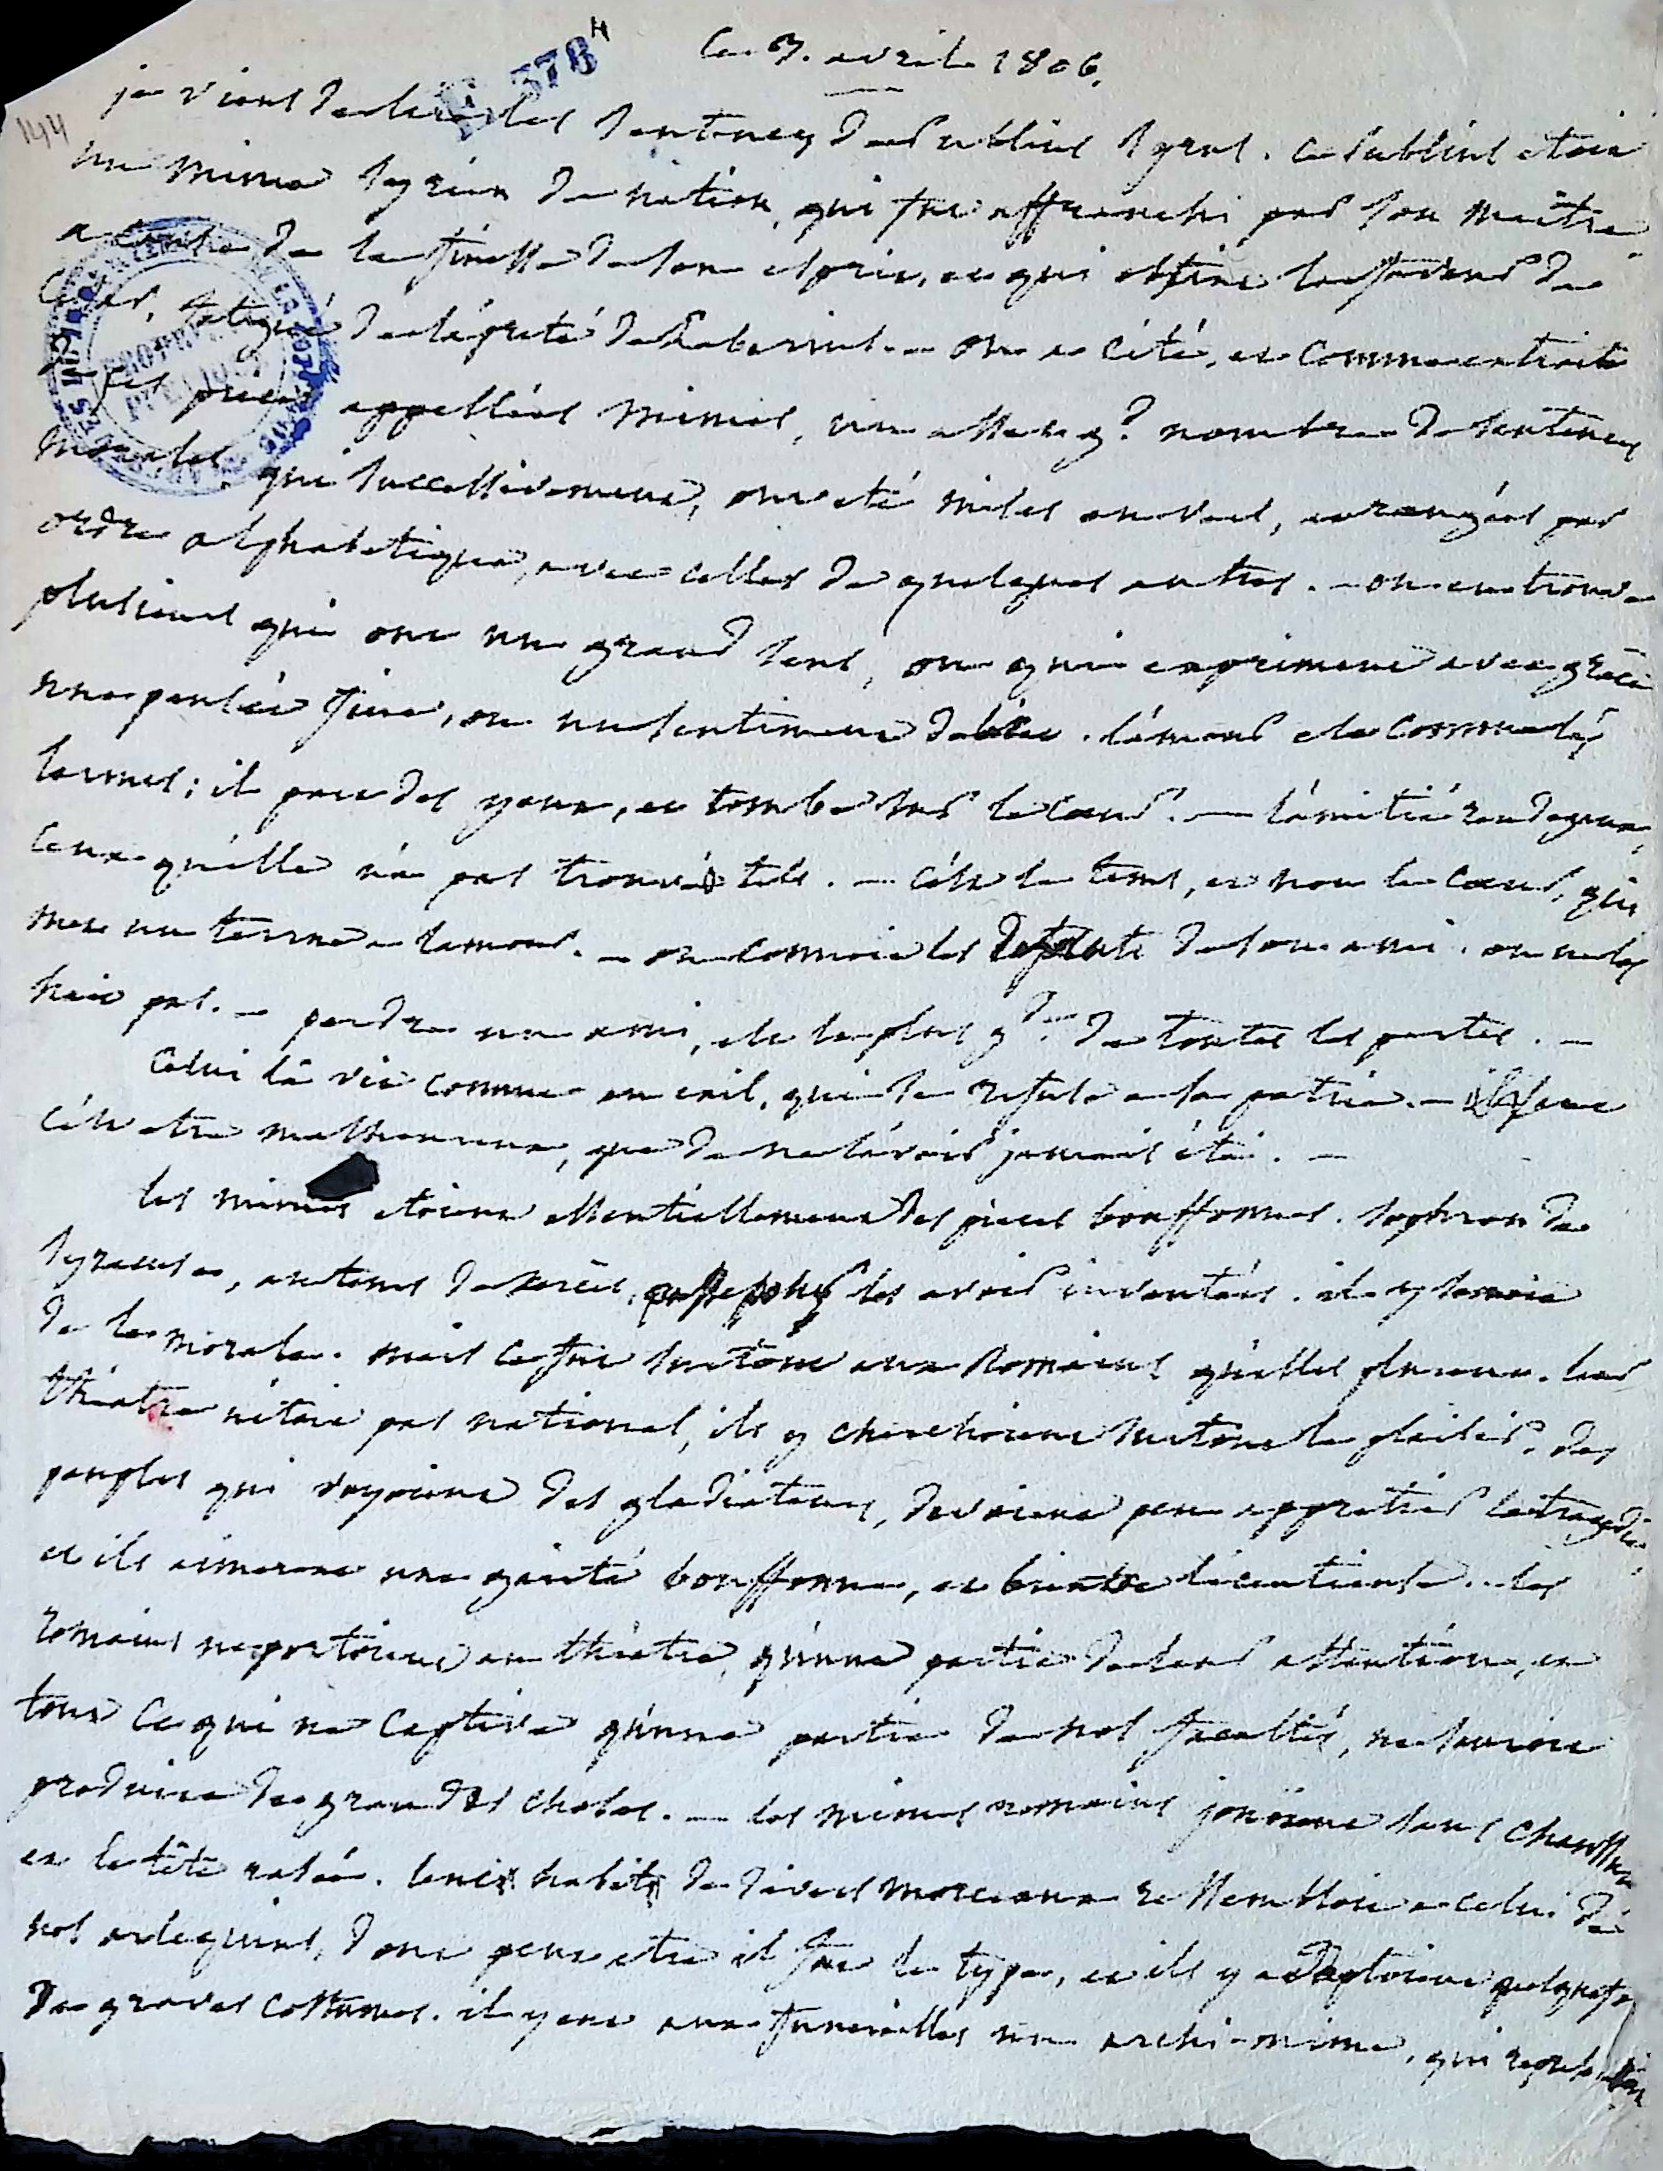 Ce 3. avril 1806.
378
144
je viens de lire les sentences de Publius Syrus. ce Publius etoit
un mime syrien de nation, qui fut affranchi par son maitre
a cause de la finesse de son esprit, et qui obtint la faveur de
Cesar, fatigué de l'apreté de Laberius. — on a cité, et comme extrait
de ses pieces appellées mimes, un assez gd nombre de sentences
morales, qui successivement, ont eté mises en vers, et rangées par
ordre alphabetique, avec celles de quelques autres. — on en trouve
plusieurs qui ont un grand sens, ou qui expriment avec grace
une pensée fine, ou un sentiment delicat. l'amour est comme les
larmes; il part des yeux, et tombe sur le coeur. — l'amitié rend egaux,
ceux qu'elle n'a pas trouvés tels. — c'est le tems, et non le coeur, qui
met un terme a l'amour. — on connoit les defauts de son ami. on ne les
hait pas. — perdre un ami, est la plus gde de toutes les pertes. —
Celui là vit comme en exil, qui se refuse a sa patrie. —
c'est etre malheureux, que de ne l'avoir jamais été. —
les mimes etoient essentiellement des pieces bouffonnes. Sophron de
Syracuse, au tems de Xercès, les avoit inventées. il y semoit
de la morale. mais ce fut surtout aux Romains qu'elles plurent. leur
théatre n'étoit pas national, ils y cherchoient surtout le plaisir. des
peuples qui voyoient des gladiateurs, devoient peu apprecier la tragedie,
et ils aimerent une gaieté bouffonne, et bientot licentieuse. — les
romains ne portoient au théatre, qu'une partie de leur attention, et
tout ce qui ne captive qu'une partie de nos facultés, ne sauroit
produire de grandes choses. — les mimes romains jouoient sans chaussure
et la tête rasée. leur habit de divers morceaux ressembloit a celui de
nos arlequins, dont peut etre il fut le type, et ils y adaptoient quelquefois
de graves costumes. il y eut aux funerailles un archi-mime, qui representoit